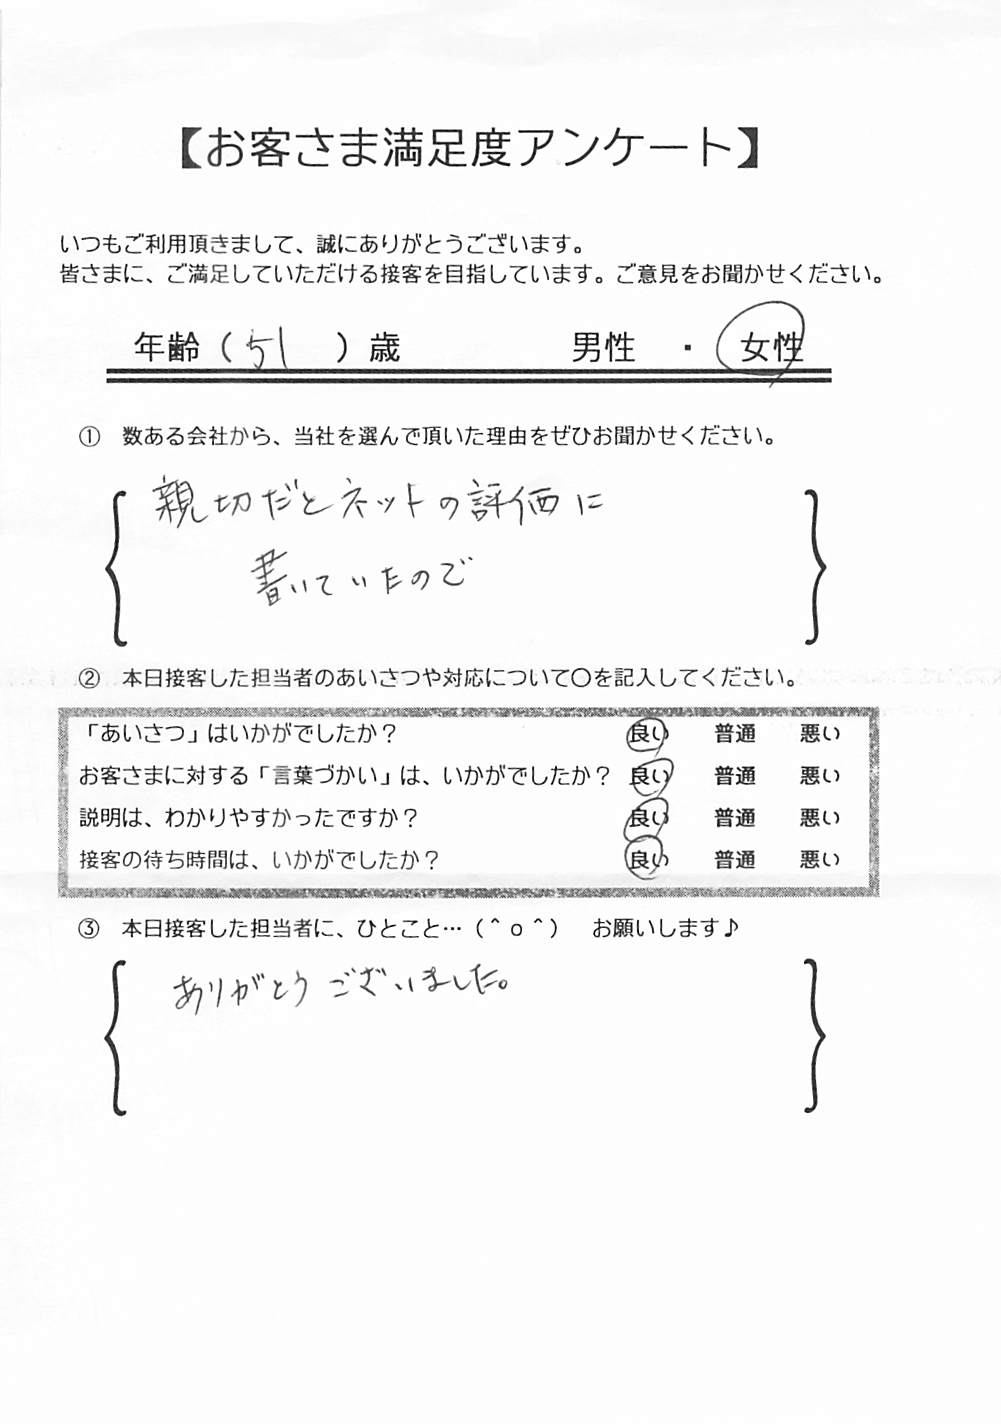 【お客さま満足度アンケート】
いつもご利用頂きまして、誠にありがとうございます。
皆さまに、ご満足していただける接客を目指しています。ご意見をお聞かせください。
年齢（51）歳　男性・女性
① 数ある会社から、当社を選んで頂いた理由をぜひお聞かせください。
親切だとネットの評価に
書いていたので
② 本日接客した担当者のあいさつや対応について〇を記入してください。
「あいさつ」はいかがでしたか？　良い　普通　悪い
お客さまに対する「言葉づかい」は、いかがでしたか？　良い　普通　悪い
説明は、わかりやすかったですか？　良い　普通　悪い
接客の待ち時間は、いかがでしたか？　良い　普通　悪い
③ 本日接客した担当者に、ひとこと…（＾ｏ＾）　お願いします♪
ありがとうございました。